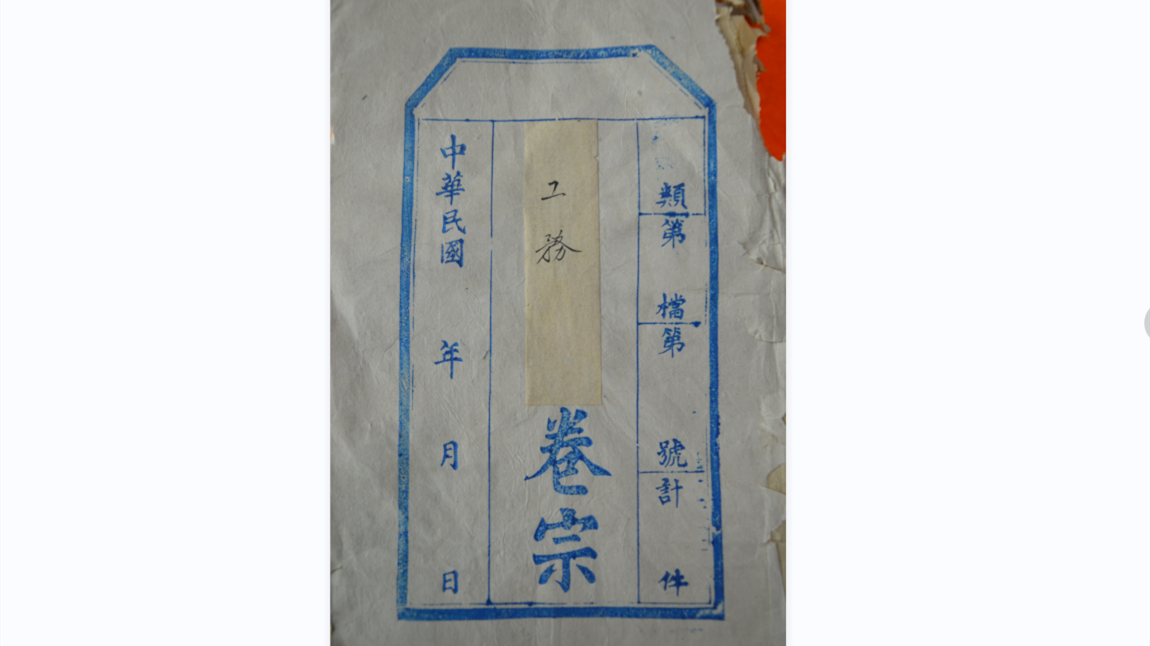 類
第檔
第號
計件
工務
卷宗
中華民國年月日